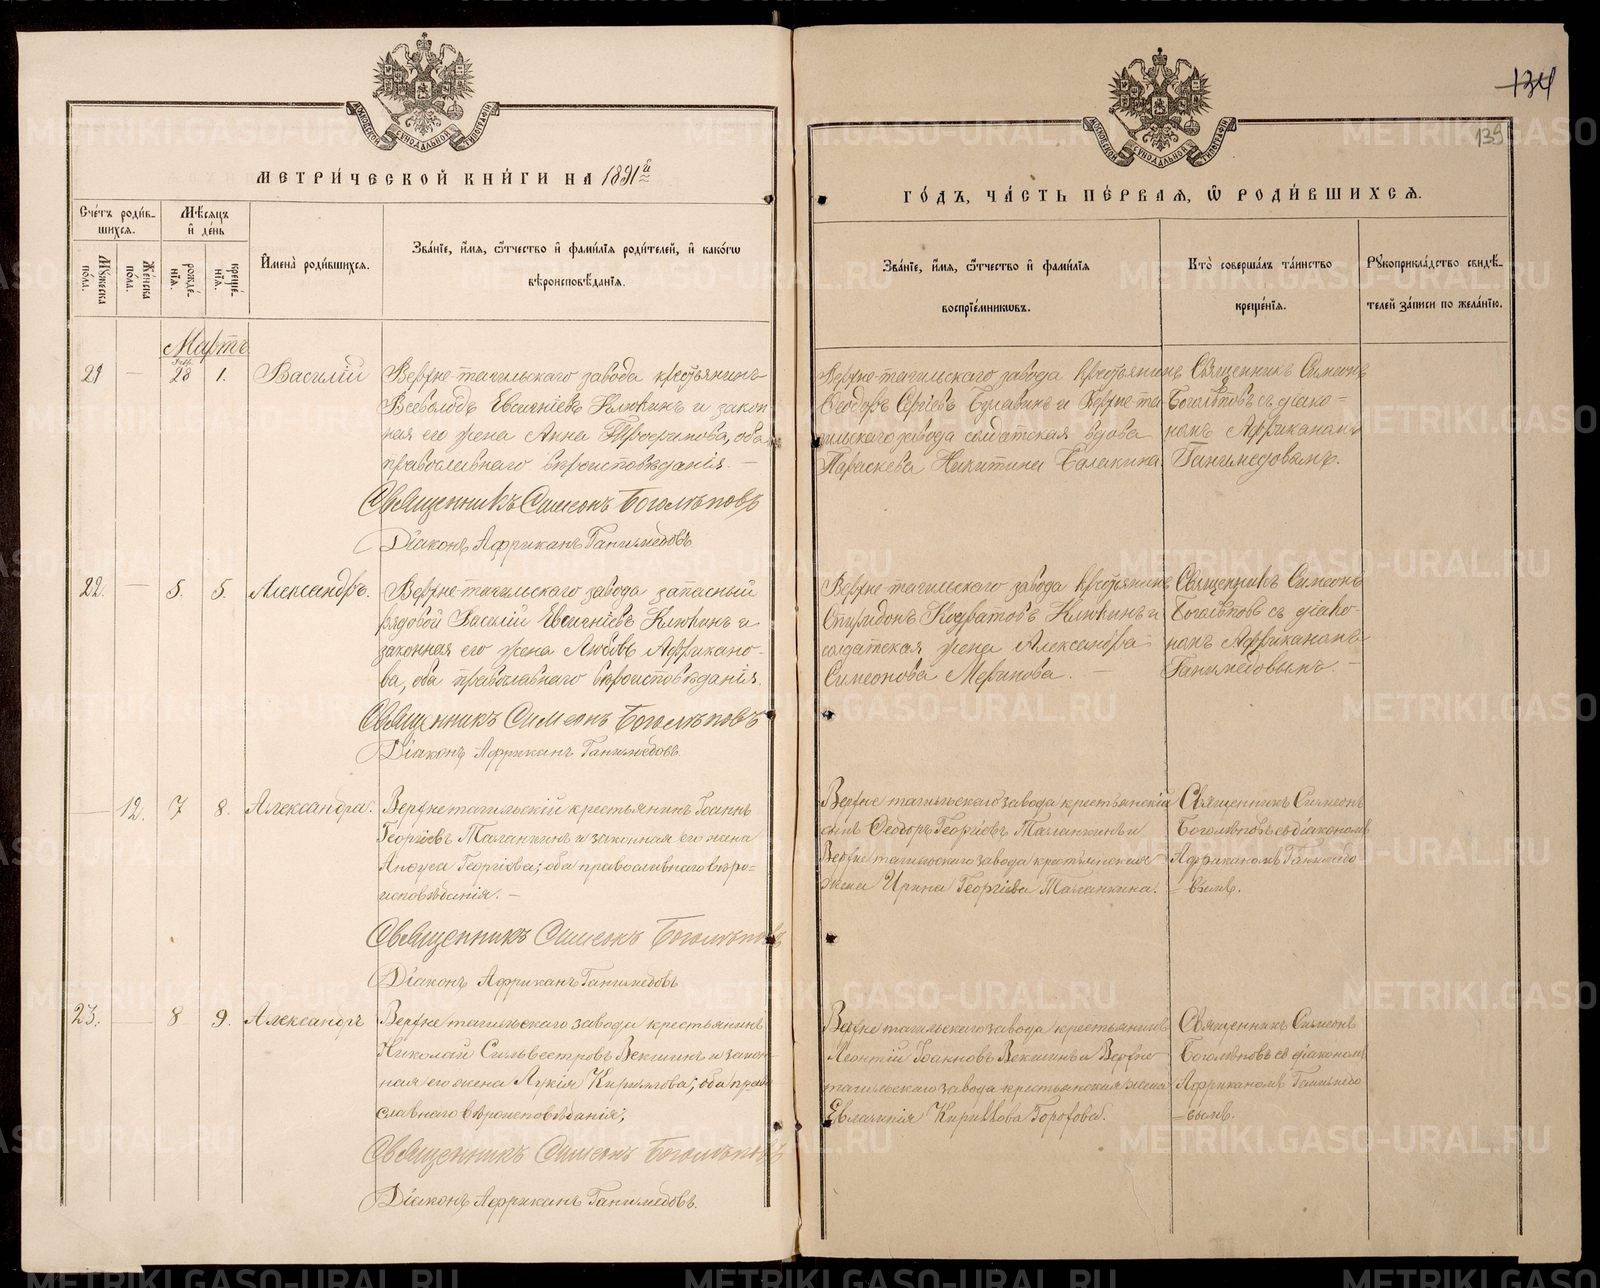 134
139
МОСКОВСКОЙ СУНОДАЛЬНОЙ ТИПОГРАФІИ
МОСКОВСКОЙ СУНОДАЛЬНОЙ ТИПОГРАФІИ
МЕТРИ́ЧЕСКОЙ КНИ́ГИ НА 1891й
ГО́ДЪ, ЧА́СТЬ ПЕ́РВАЯ, Ѽ РОДИ́ВШИХСЯ.
Сче́тъ роди́в-
шихся.
Мꙋжеска по́ла.
Же́нска по́ла.
Мѣ́сяцъ
и҆ де́нь
рожде́-
нїя.
креще́-
нїя.
И҆мена̀ роди́вшихся.
Зва́нїе, и҆́мя, ѻ҆́тчество и҆ фами́лїя роди́телей, и҆ како́гѡ
вѣроисповѣ́данїя.
Зва́нїе, и҆́мя, ѻ҆́тчество и҆ фами́лїя
воспрїе́мникѡвъ.
Кто̀ соверша́лъ та́инство
креще́нїя.
Рꙋкоприкла́дство свидѣ́-
телей за́писи по жела́нїю.
Мартъ
21 — Февр. 28 1. Василій
Верхне-тагильскаго завода крестьянинъ
Всеволодъ Евгеніевъ Клюкинъ и закон
ная его жена Анна Трофимова, оба
православнаго вѣроисповѣданія. —
Священникъ Симеонъ Боголѣповъ
Діаконъ Африканъ Ганимедовъ
Верхне-тагильскаго завода крестьянинъ
Ѳеодоръ Сергіевъ Булавинъ и Верхне-та
гильскаго завода солдатская вдова
Параскева Никитина Балакина.
Священникъ Симеонъ
Боголѣповъ съ діако-
номъ Африканомъ
Ганимедовымъ.
22. — 5. 5. Александръ.
Верхне-тагильскаго завода запасный
рядовой Васкій Евгеніевъ Клюкинъ и
законная его жена Любовь Африкано-
ва, оба православнаго вѣроисповѣданія.
Священникъ Симеонъ Боголѣповъ
Діаконъ Африканъ Ганимедовъ.
Верхне-тагильскаго завода крестьянинъ
Спиридонъ Кодратовъ Клюкинъ и
солдатская жена Александра
Симеонова Меринова. —
Священникъ Симеонъ
Боголѣповъ съ діако-
номъ Африканомъ
Ганимедовымъ. —
— 12. 7 8. Александра.
Верхнетагильскій крестьянинъ Іоаннъ
Георгіевъ Маланкинъ и законная его жена
Георгіева; оба православнаго вѣро-
исповѣданія. —
Священникъ Симеонъ Боголѣповъ
Діаконъ Африканъ Ганимедовъ
Верхне тагильскаго завода крестьянскій
сынъ Ѳеодоръ Георгіевъ Маланкинъ и
Верхне тагильскаго завода крестьянская
жена Ирина Георгіева Маланкина.
Священникъ Симеонъ
Боголѣповъ съ діакономъ
Африканомъ Ганимедо
— вымъ.
23. 8 9. Александръ
Верхне тагильскаго завода крестьянинъ
Николай Сильвестровъ Векшинъ и закон-
ная его жена Лукія Кириллова; оба пра
славнаго вѣроисповѣданія;
Священникъ Симеонъ Боголѣповъ
Діаконъ Африканъ Ганимедовъ.
Верхне тагильскаго завода крестьянинъ
Леонтій Іоанновъ Векшинъ и Верхне
тагильскаго завода крестьянская жена
Евлампія Кириллова Горохова.
Священникъ Симеонъ
Боголѣповъ съ діакономъ
Африканомъ Ганимедо
— вымъ.
METRIKI.GASO-URAL.RU